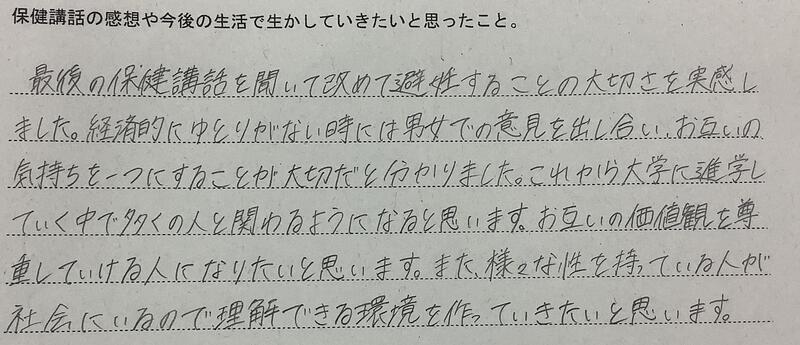 保健講話の感想や今後の生活で生かしていきたいと思ったこと。
最後の保健講話を聞いて改めて避妊することの大切さを実感し
ました。経済的にゆとりがない時には男女での意見を出し合い、お互いの
気持ちを一つにすることが大切だと分かりました。これから大学に進学し
ていく中で多くの人と関わるようになると思います。お互いの価値観を尊
重していける人になりたいと思います。また、様々な性を持っている人が
社会にいるので理解できる環境を作っていきたいと思います。